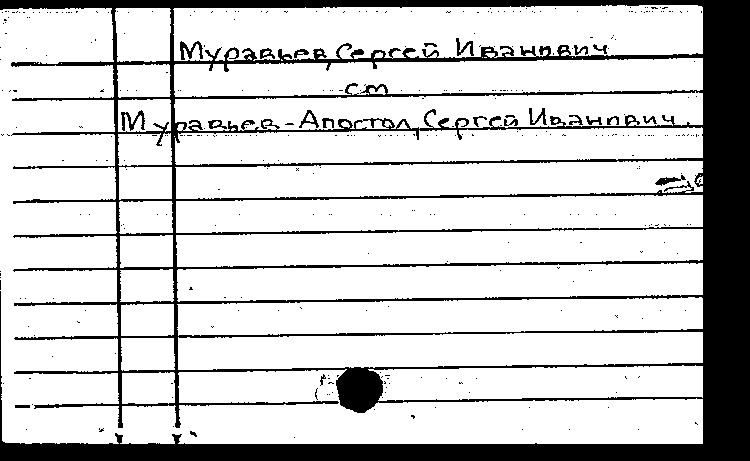 Муравьев, Сергей Иванович
см
Муравьев-Апостол, Сергей Иванович.